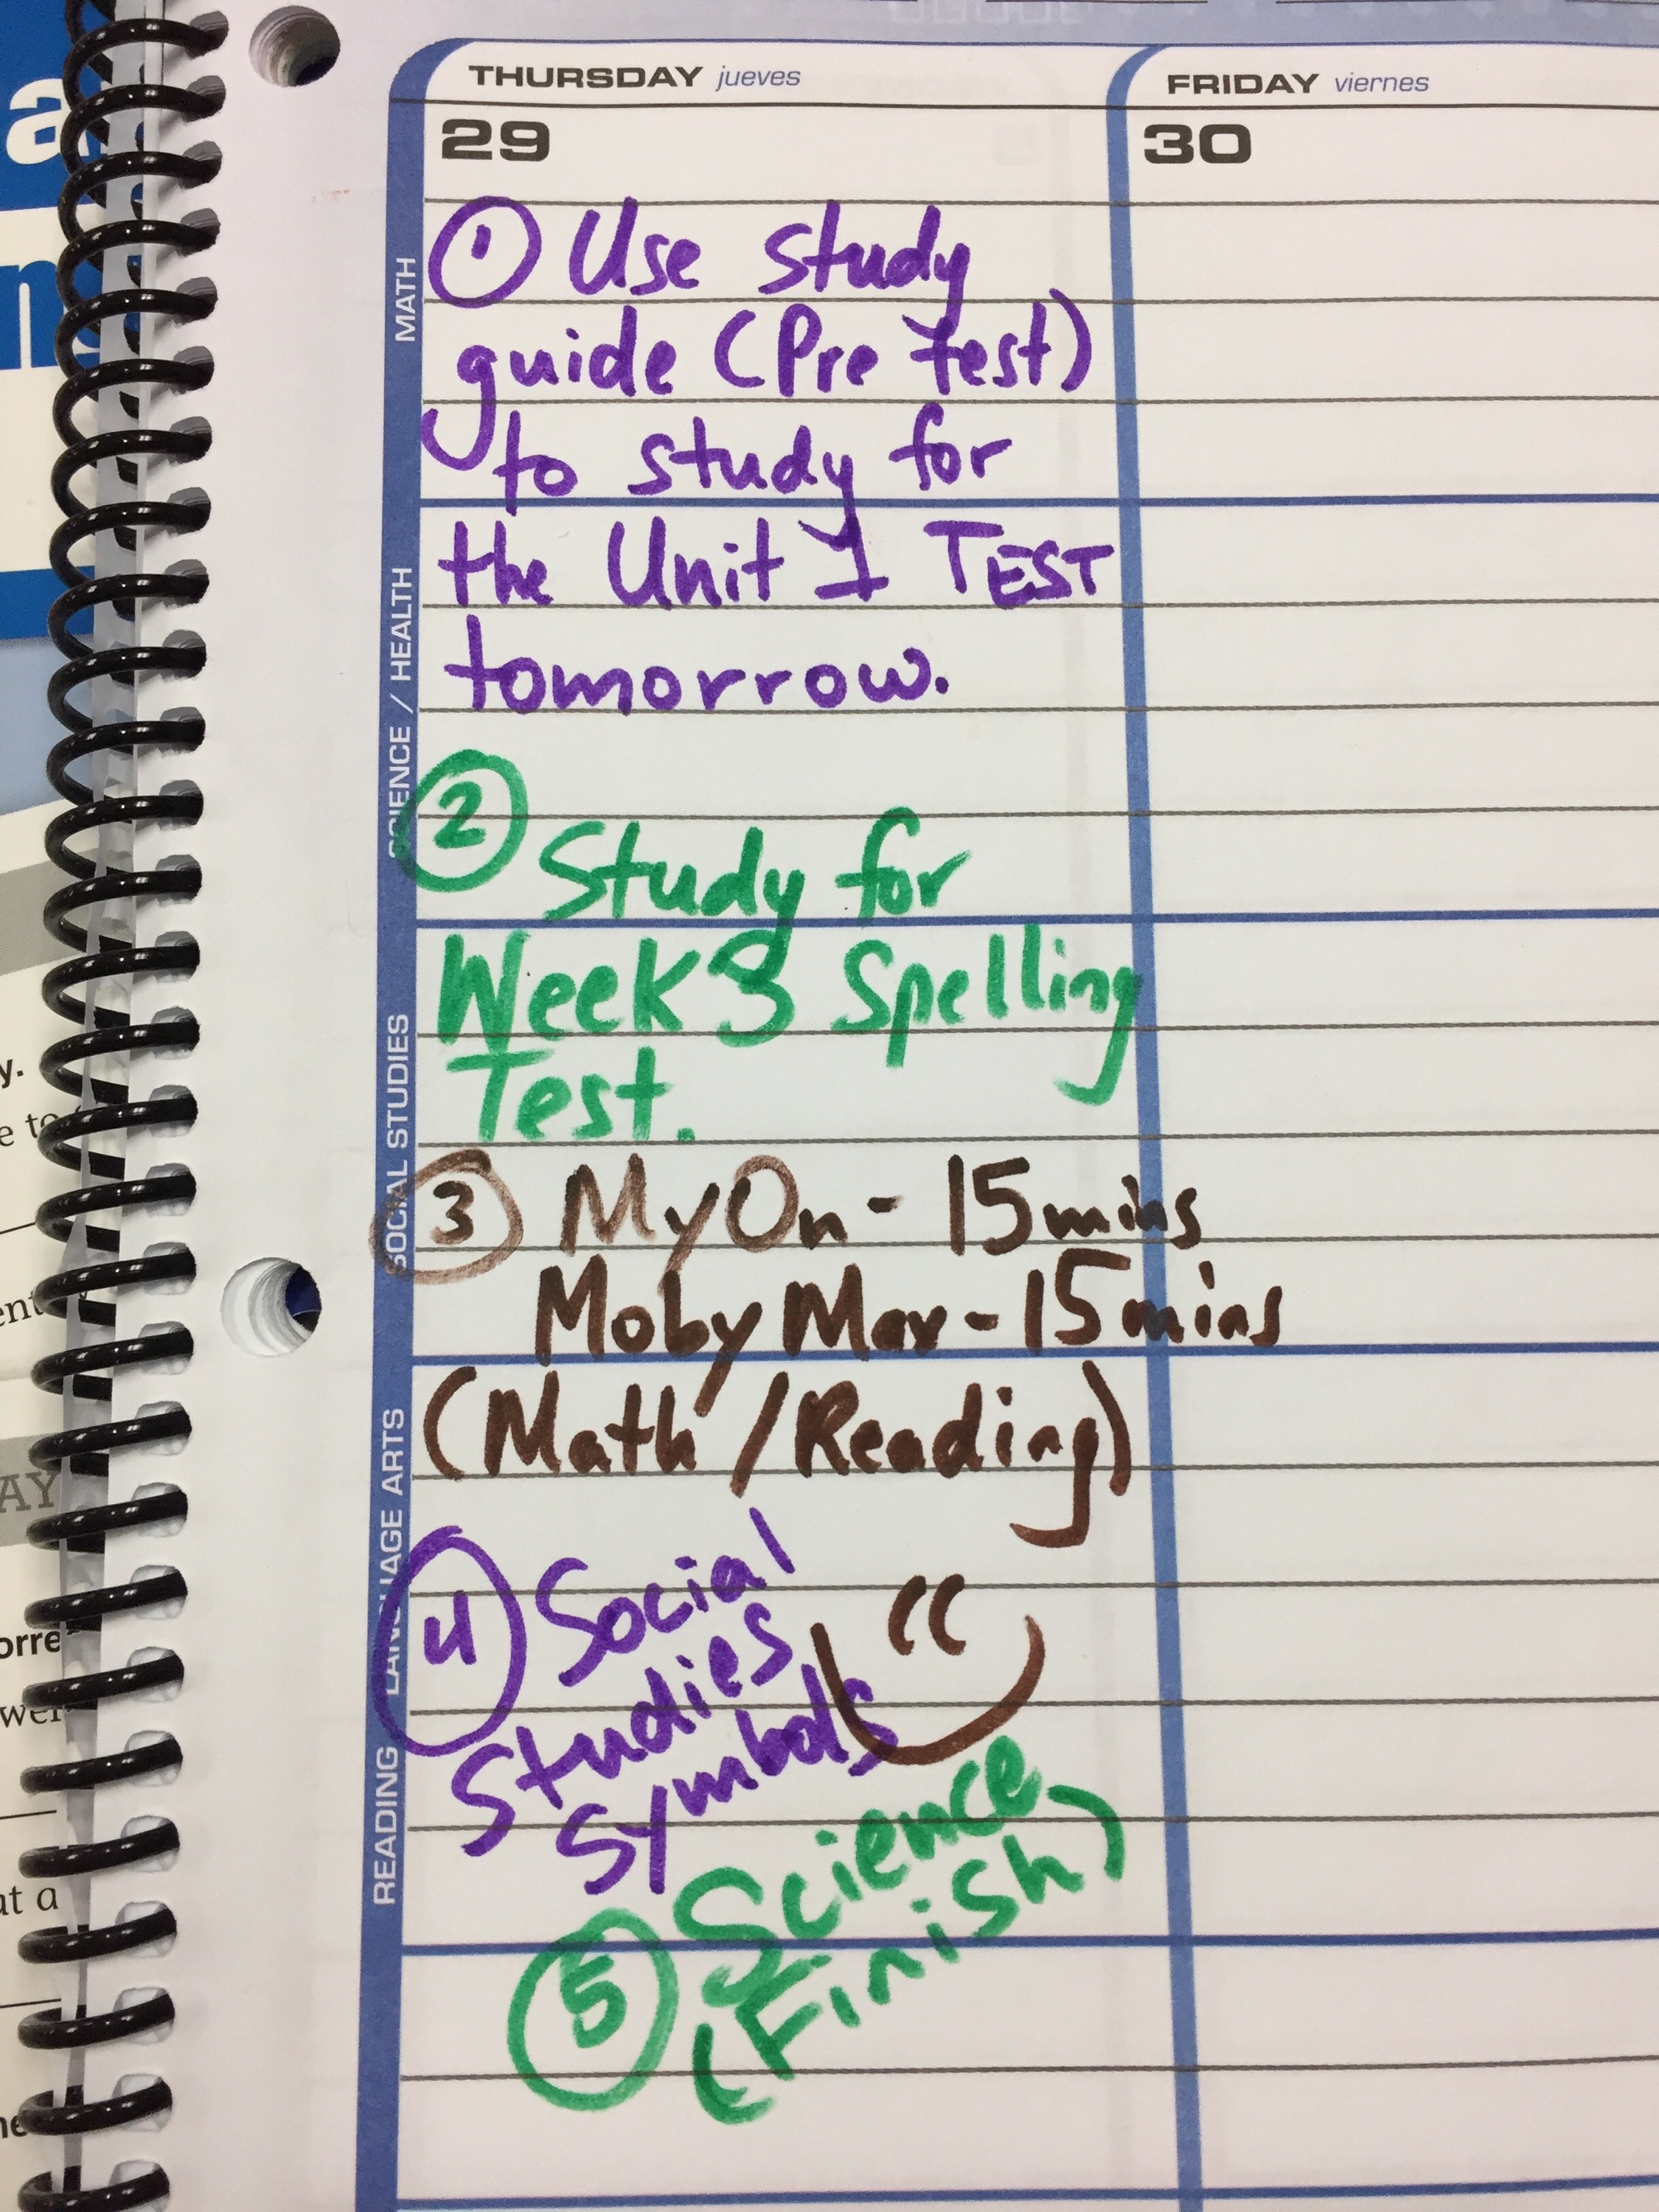 THURSDAY jueves
29
① Use study
guide (Pre test)
to study for
the Unit 1 TEST
tomorrow.
② Study for
Week 3 Spelling
Test.
③ MyOn - 15 mins
Moby Max - 15 mins
(Math / Reading)
④ Social
Studies
Symbols
⑤ Science
(Finish)
FRIDAY viernes
30
MATH
SCIENCE / HEALTH
SOCIAL STUDIES
LANGUAGE ARTS
READING
a
n
y.
e to
ent
AY
orre
wer
ut a